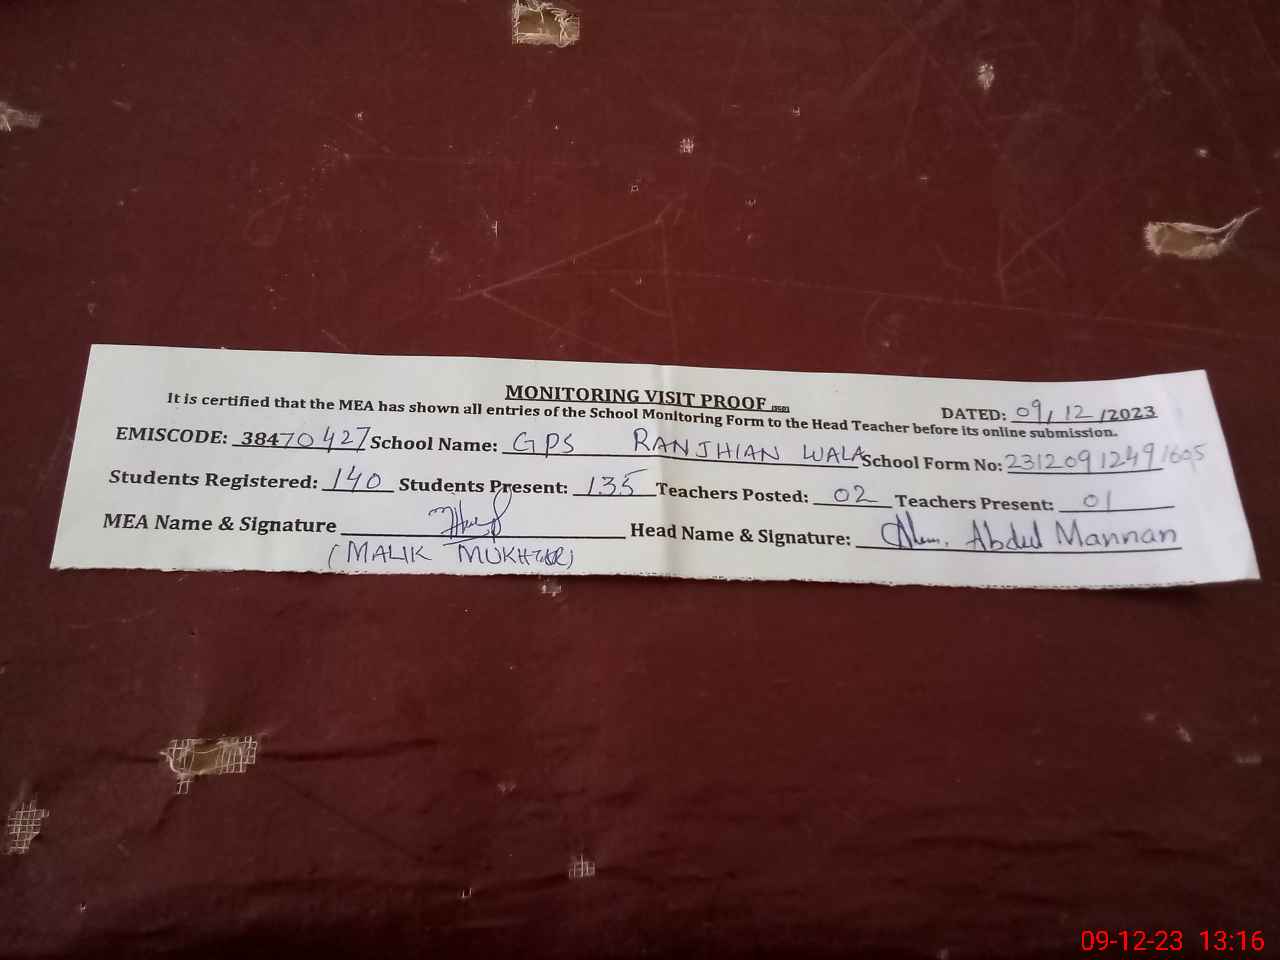 MONITORING VISIT PROOF
DATED: 09/12/2023
It is certified that the MEA has shown all entries of the School Monitoring Form to the Head Teacher before its online submission.
EMISCODE: 38470427 School Name: GPS RANJHIAN WALA School Form No: 23120912491605
Students Registered: 140 Students Present: 135 Teachers Posted: 02 Teachers Present: 01
MEA Name & Signature Head Name & Signature: Abdul Mannan
(MALIK MUKHTAR)
09-12-23 13:16